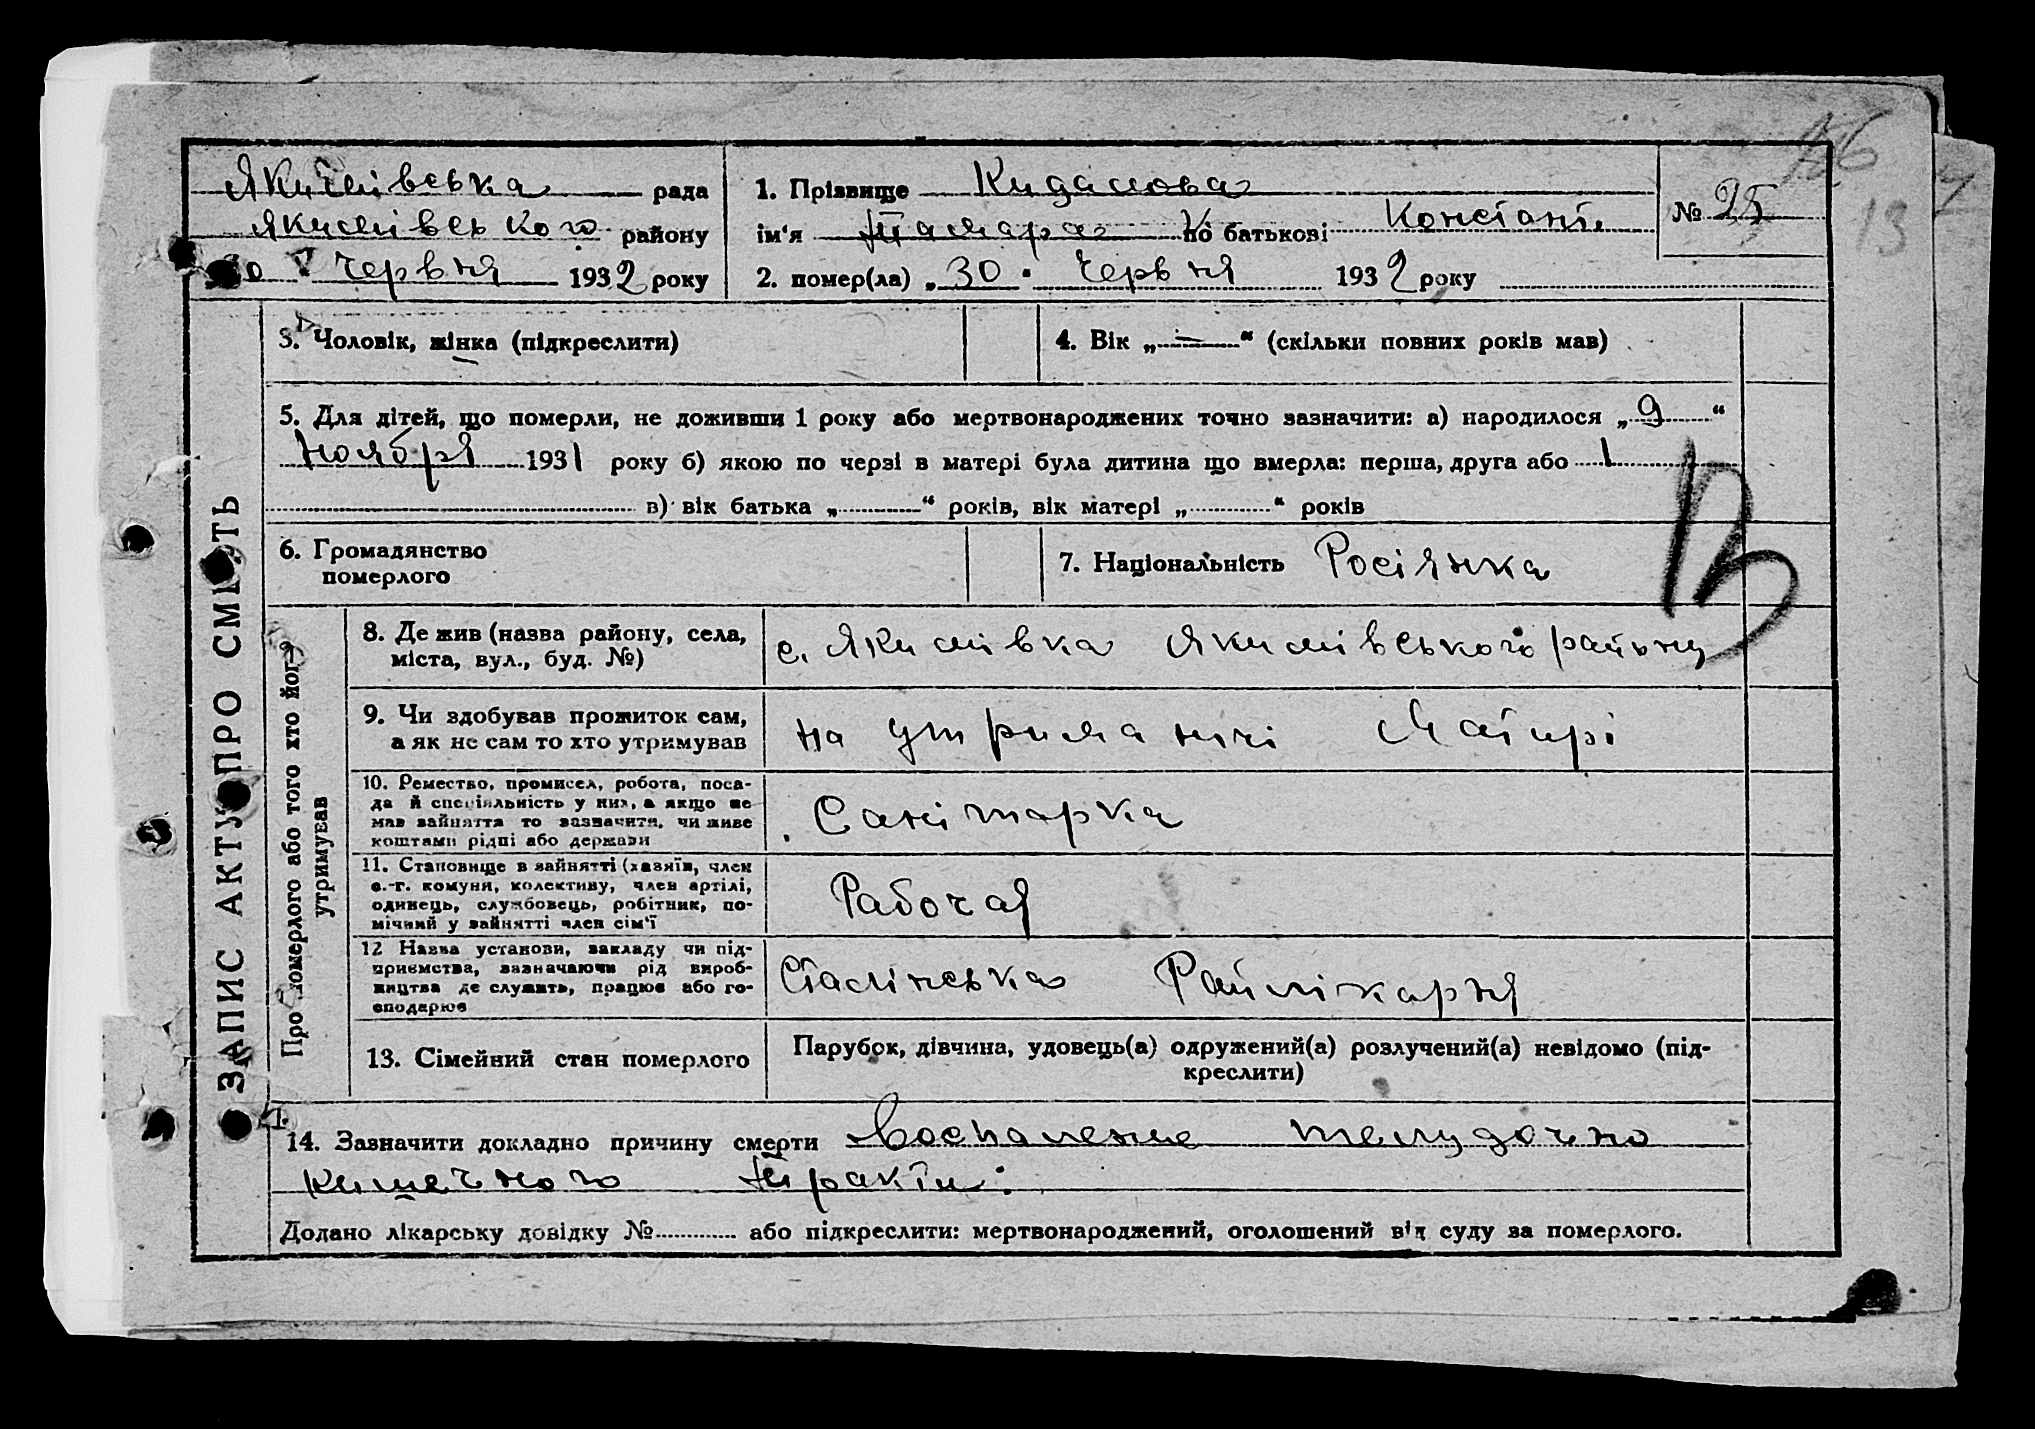 Якимівська рада
Якимівського району
30 Червня 1932 року
1. Прізвище Кидалова
ім'я Тамара по батькові Констант.
2. помер(ла) „30" Червня 1932 року
№ 25
13
ЗАПИС АКТУ ПРО СМЕРТЬ
3. Чоловік, жінка (підкреслити)
4. Вік „—" (скільки повних років мав)
5. Для дітей, що померли, не доживши 1 року або мертвонароджених точно зазначити: а) народилося „9"
Ноября 1931 року б) якою по черзі в матері була дитина що вмерла: перша, друга або 1
в) вік батька „ " років, вік матері „ " років
6. Громадянство
померлого
7. Національність Росіянка
Про померлого або того хто його
утримував
8. Де жив (назва району, села,
міста, вул., буд. №)
с. Якимівка Якимівського району
9. Чи здобував прожиток сам,
а як не сам то хто утримував
на утриманні Матирі
10. Ремество, промисел, робота, поса-
да й спеціяльність у них, а якщо не
мав зайняття то зазначити, чи живе
коштами рідні або держави
Санітарка
11. Становище в зайнятті (хазяїн, член
с.-г. комуни, колективу, член артілі,
одинець, службовець, робітник, по-
мічний у зайнятті член сім'ї
Рабочая
12 Назва установи, закладу чи під-
приємства, зазначаючи рід вироб-
ництва де служить, працює або го-
сподарює
Сталінська Райлікарня
13. Сімейний стан померлого
Парубок, дівчина, удовець(а) одружений(а) розлучений(а) невідомо (під-
креслити)
14. Зазначити докладно причину смерти Воспаление желудочно
кишечного тракта.
Додано лікарську довідку № або підкреслити: мертвонароджений, оголошений від суду за померлого.